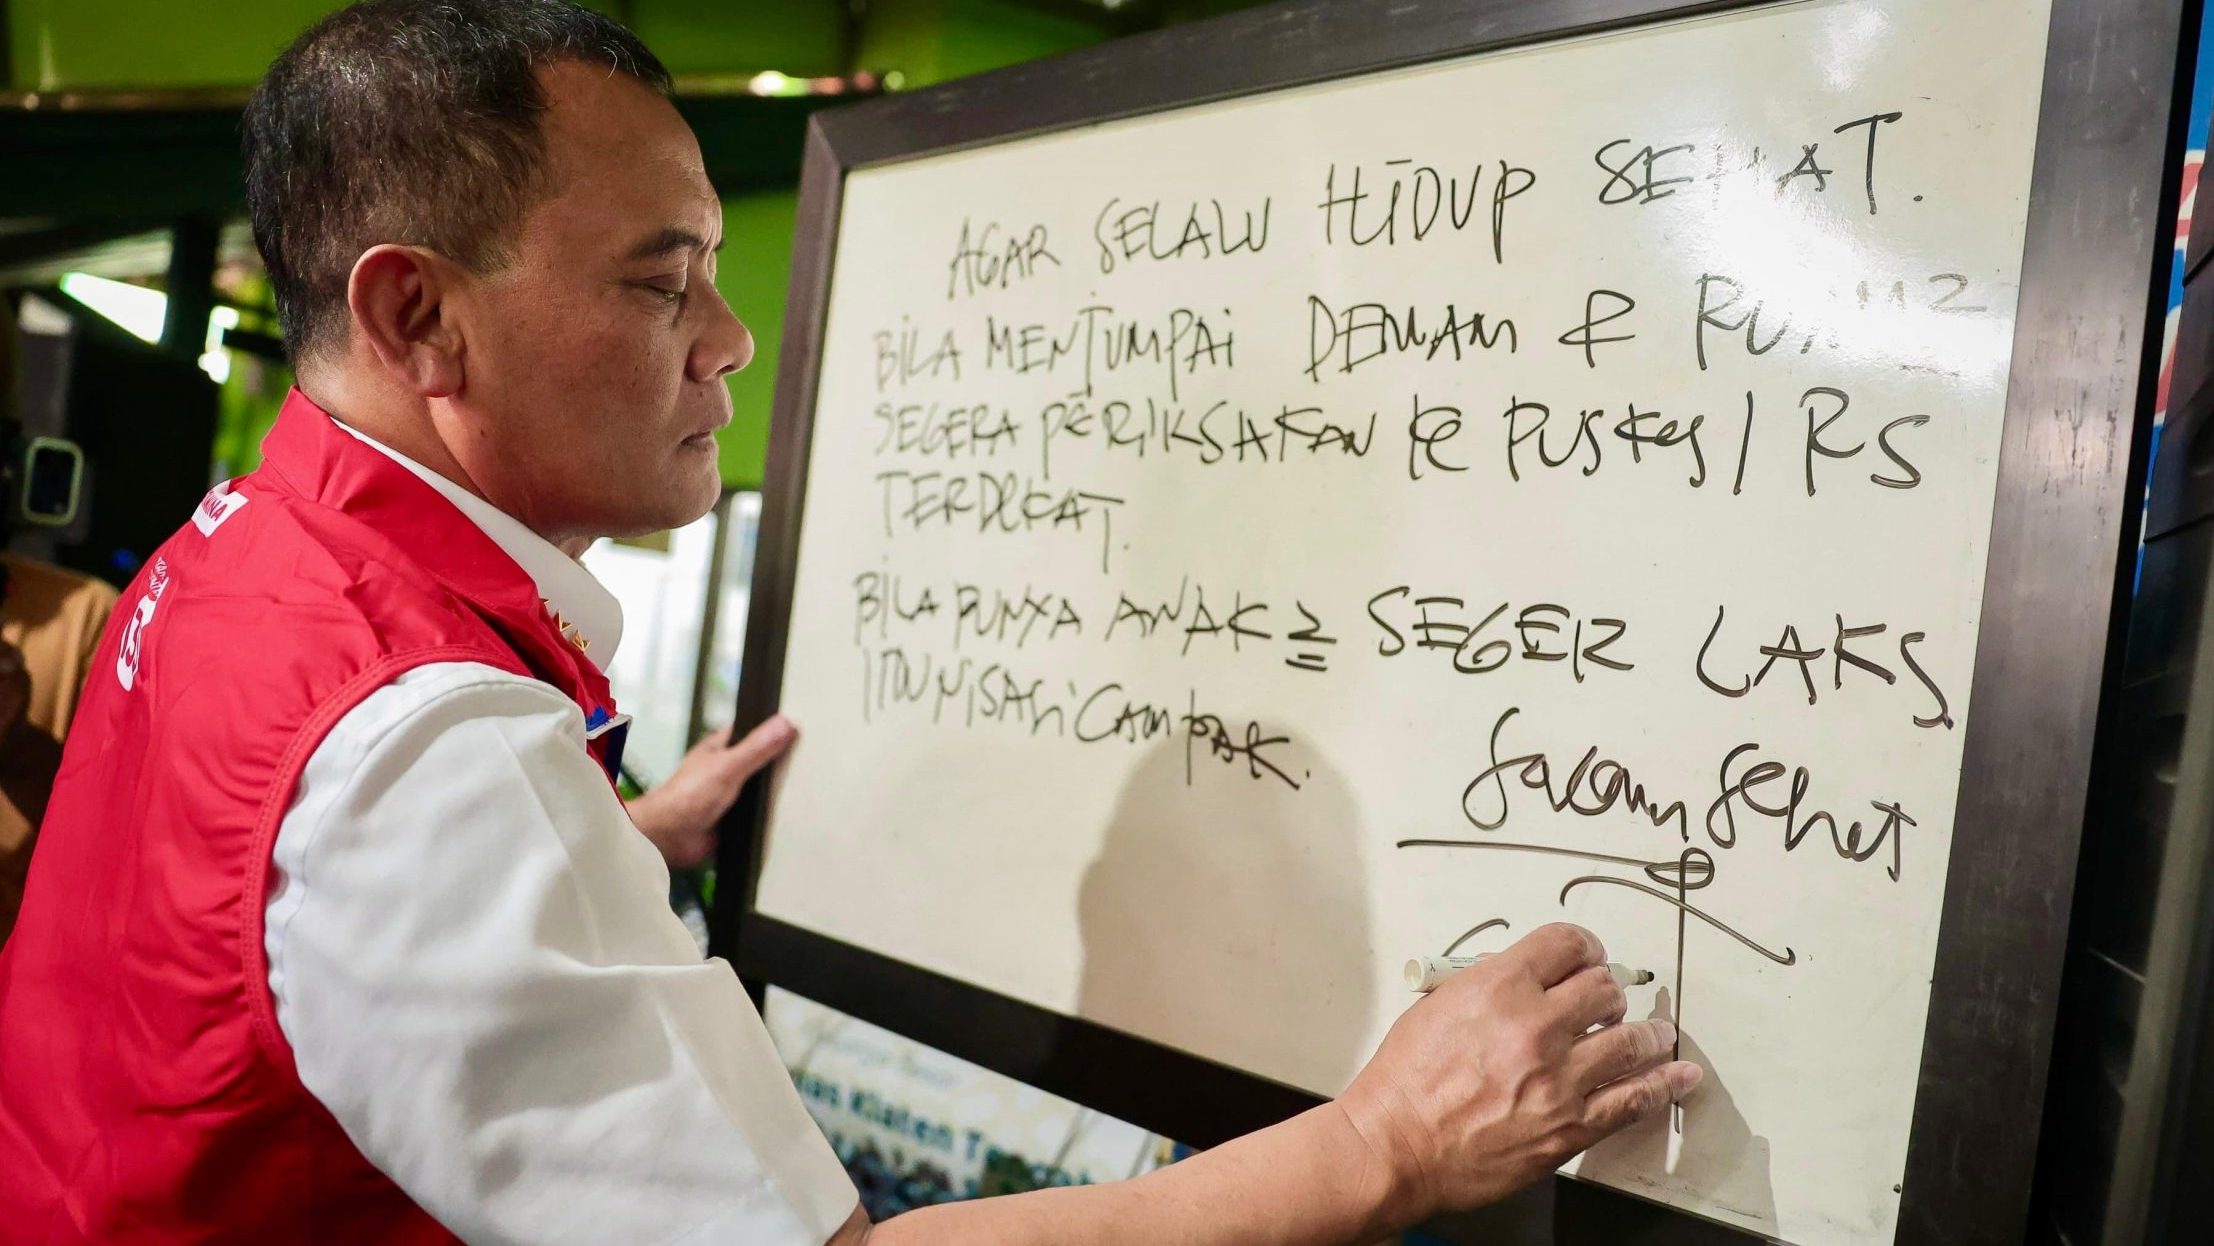 AGAR SELALU HIDUP SEHAT.
BILA MENJUMPAI DEMAM &
SEGERA PERIKSAKAN KE PUSKES / RS
TERDEKAT.
BILA PUNYA ANAK2 = SEGER LAKS
CAMPAK.
Salam Sehat